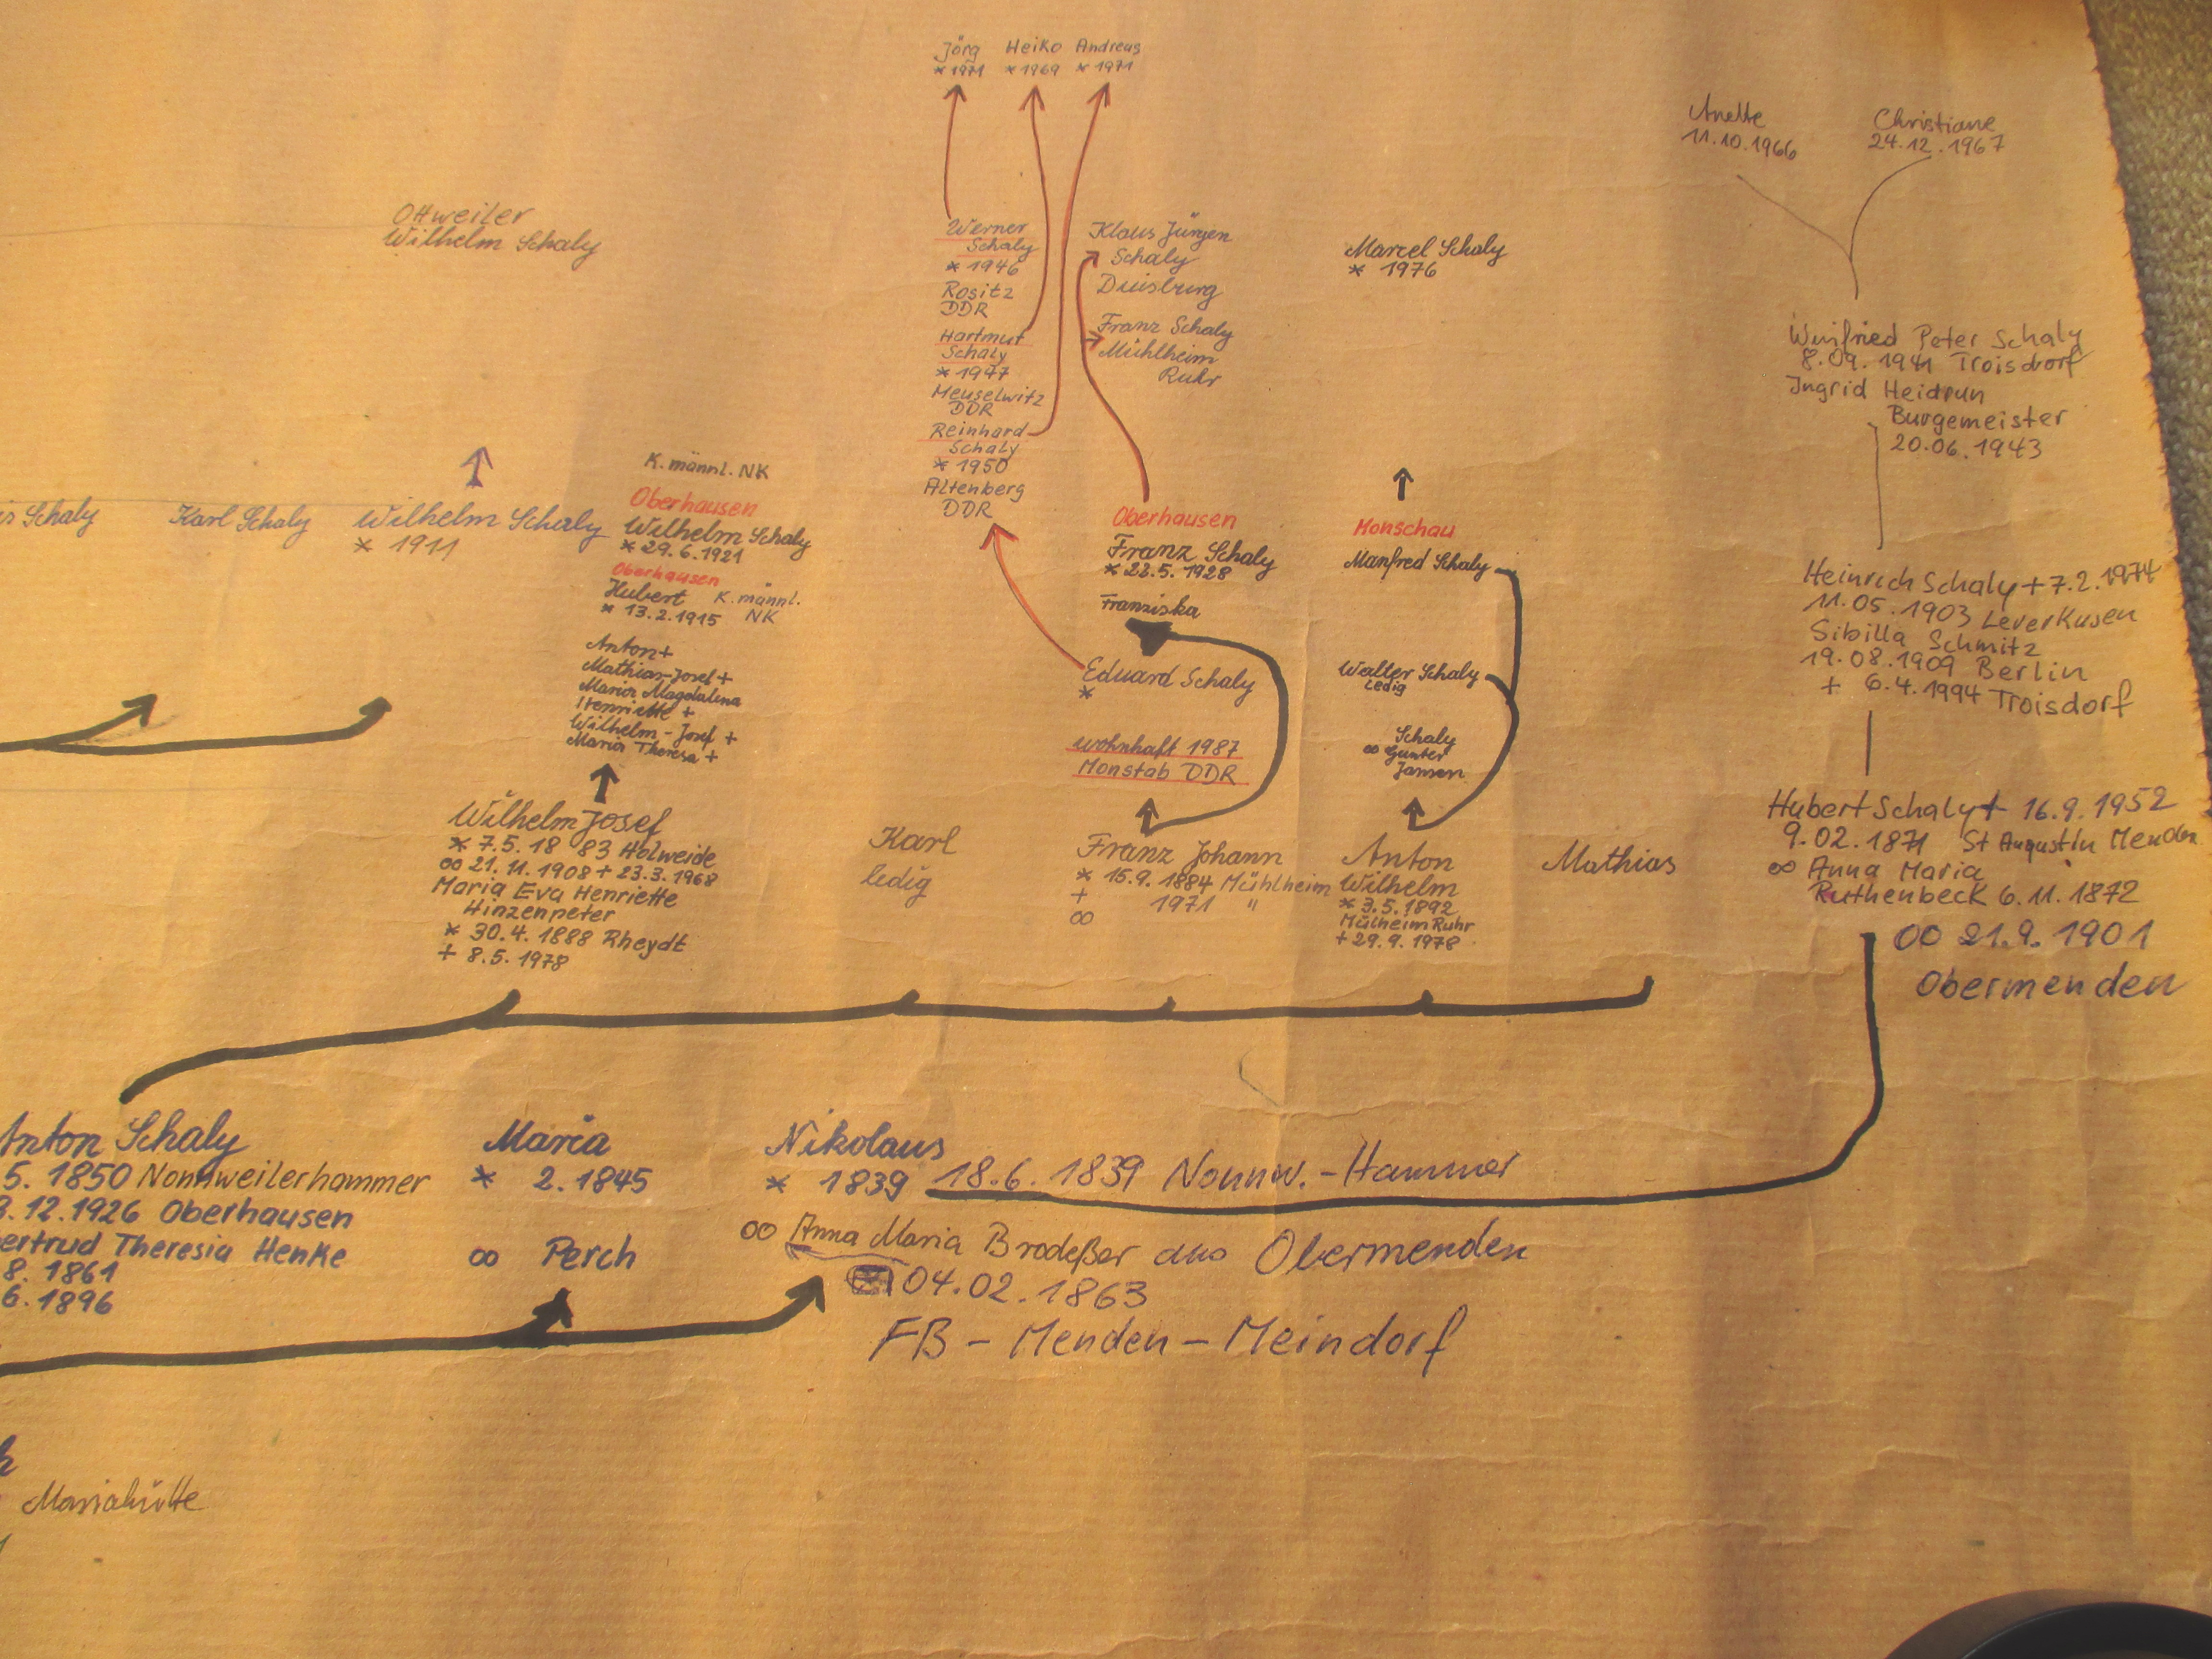 Jörg Heiko Andreas
* 1971 * 1969 * 1971
Anette
11.10.1966
Christiane
24.12.1967
Ottweiler
Wilhelm Schaly
Werner
Schaly
* 1946
Rositz
DDR
Hartmut
Schaly
* 1947
Meuselwitz
DDR
Reinhard
Schaly
* 1950
Altenberg
DDR
Klaus Jürgen
Schaly
Duisburg
Franz Schaly
Mühlheim
Ruhr
Marcel Schaly
* 1976
Winfried Peter Schaly
8.09.1941 Troisdorf
Ingrid Heidrun
Burgemeister
20.06.1943
Schaly
Karl Schaly
Wilhelm Schaly
* 1911
K. männl. NK
Oberhausen
Wilhelm Schaly
* 29.6.1921
Oberhausen
Hubert K. männl.
* 13.2.1915 NK
Anton +
Mathias-Josef +
Maria Magdalena
Henriette +
Wilhelm-Josef +
Maria Theresa +
Oberhausen
Franz Schaly
* 22.5.1928
Franziska
Eduard Schaly
*
wohnhaft 1987
Monstab DDR
Monschau
Manfred Schaly
Walter Schaly
ledig
Schaly
∞ Günter
Jansen
Heinrich Schaly + 7.2.1974
11.05.1903 Leverkusen
Sibilla Schmitz
19.08.1909 Berlin
+ 6.4.1994 Troisdorf
Wilhelm Josef
* 7.5.18 83 Holweide
∞ 21.11.1908 + 23.3.1968
Maria Eva Henriette
Hinzenpeter
* 30.4.1888 Rheydt
+ 8.5.1978
Karl
ledig
Franz Johann
* 15.9.1884 Mühlheim
+ 1971 "
∞
Anton
Wilhelm
* 3.5.1892
Mülheim Ruhr
+ 29.9.1978
Mathias
Hubert Schaly + 16.9.1952
9.02.1871 St Augustin Menden
∞ Anna Maria
Ruthenbeck 6.11.1872
∞ 21.9.1901
Obermenden
Anton Schaly
5.1850 Nonnweilerhammer
.12.1926 Oberhausen
ertrud Theresia Henke
8.1861
6.1896
Maria
* 2.1845
∞ Perch
Nikolaus
* 1839 18.6.1839 Nonnw.-Hammer
∞ Anna Maria Brodeßer aus Obermenden
04.02.1863
FB - Menden - Meindorf
Mariahütte